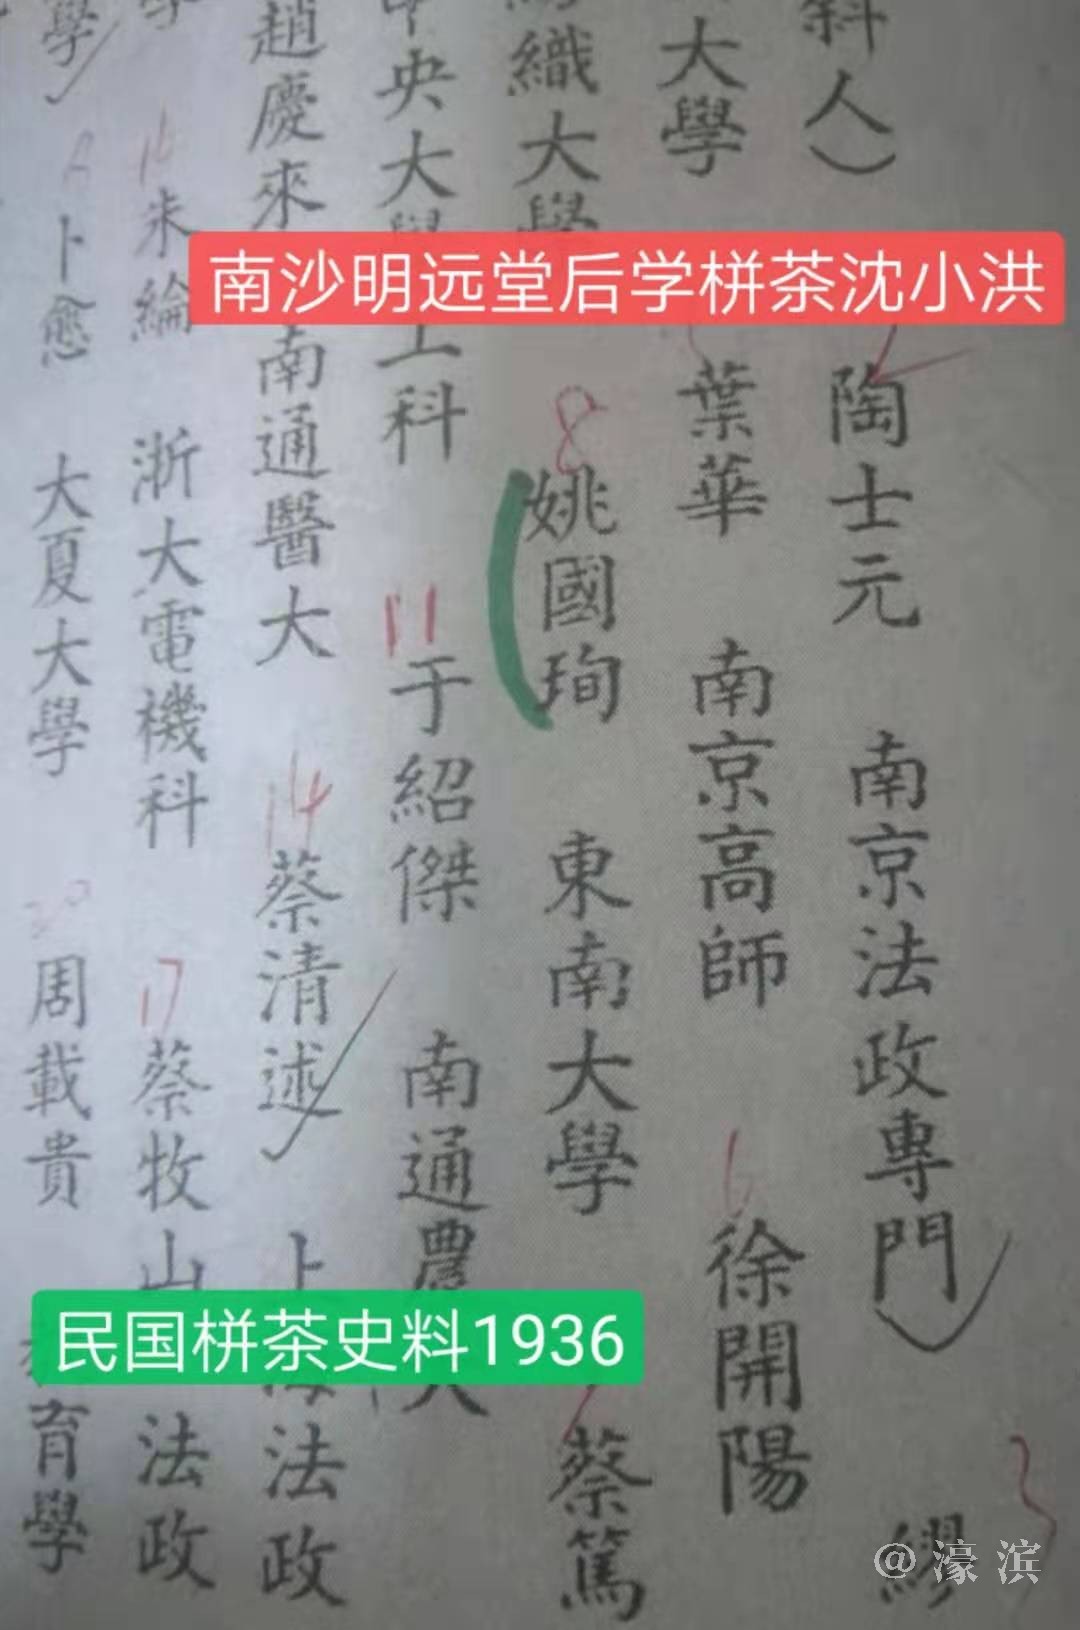 斜人）
陶士元　南京法政專門　繆
大學
葉華　南京高師　徐開陽
織大學
姚國珣　東南大學　蔡篤
中央大學工科
于紹傑　南通農大
趙慶來　南通醫大　蔡清述　上海法政
朱綸　浙大電機科　蔡牧山　法政
學
卜愈　大夏大學　周載貴　育學
南沙明远堂后学栟茶沈小洪
民国栟茶史料1936
8
11
14
16
17
6
3
@濠滨